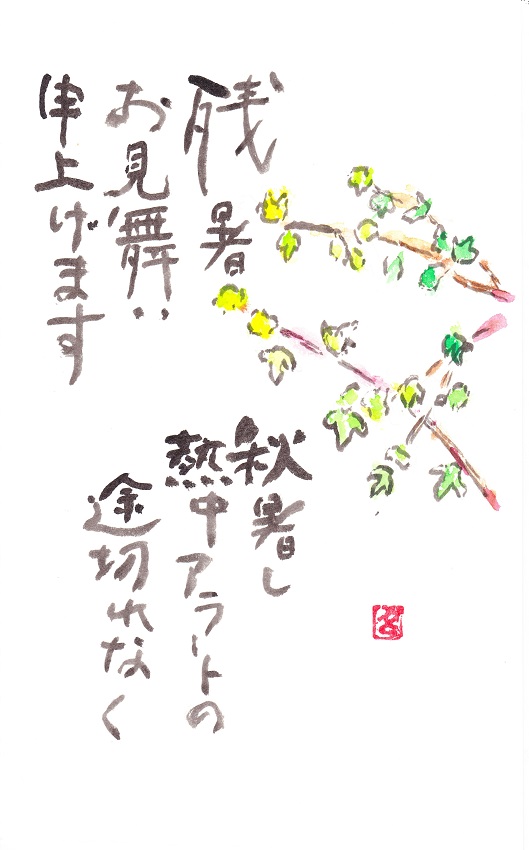 残暑
お見舞い
申上げます
秋暑し
熱中アラートの
途切れなく